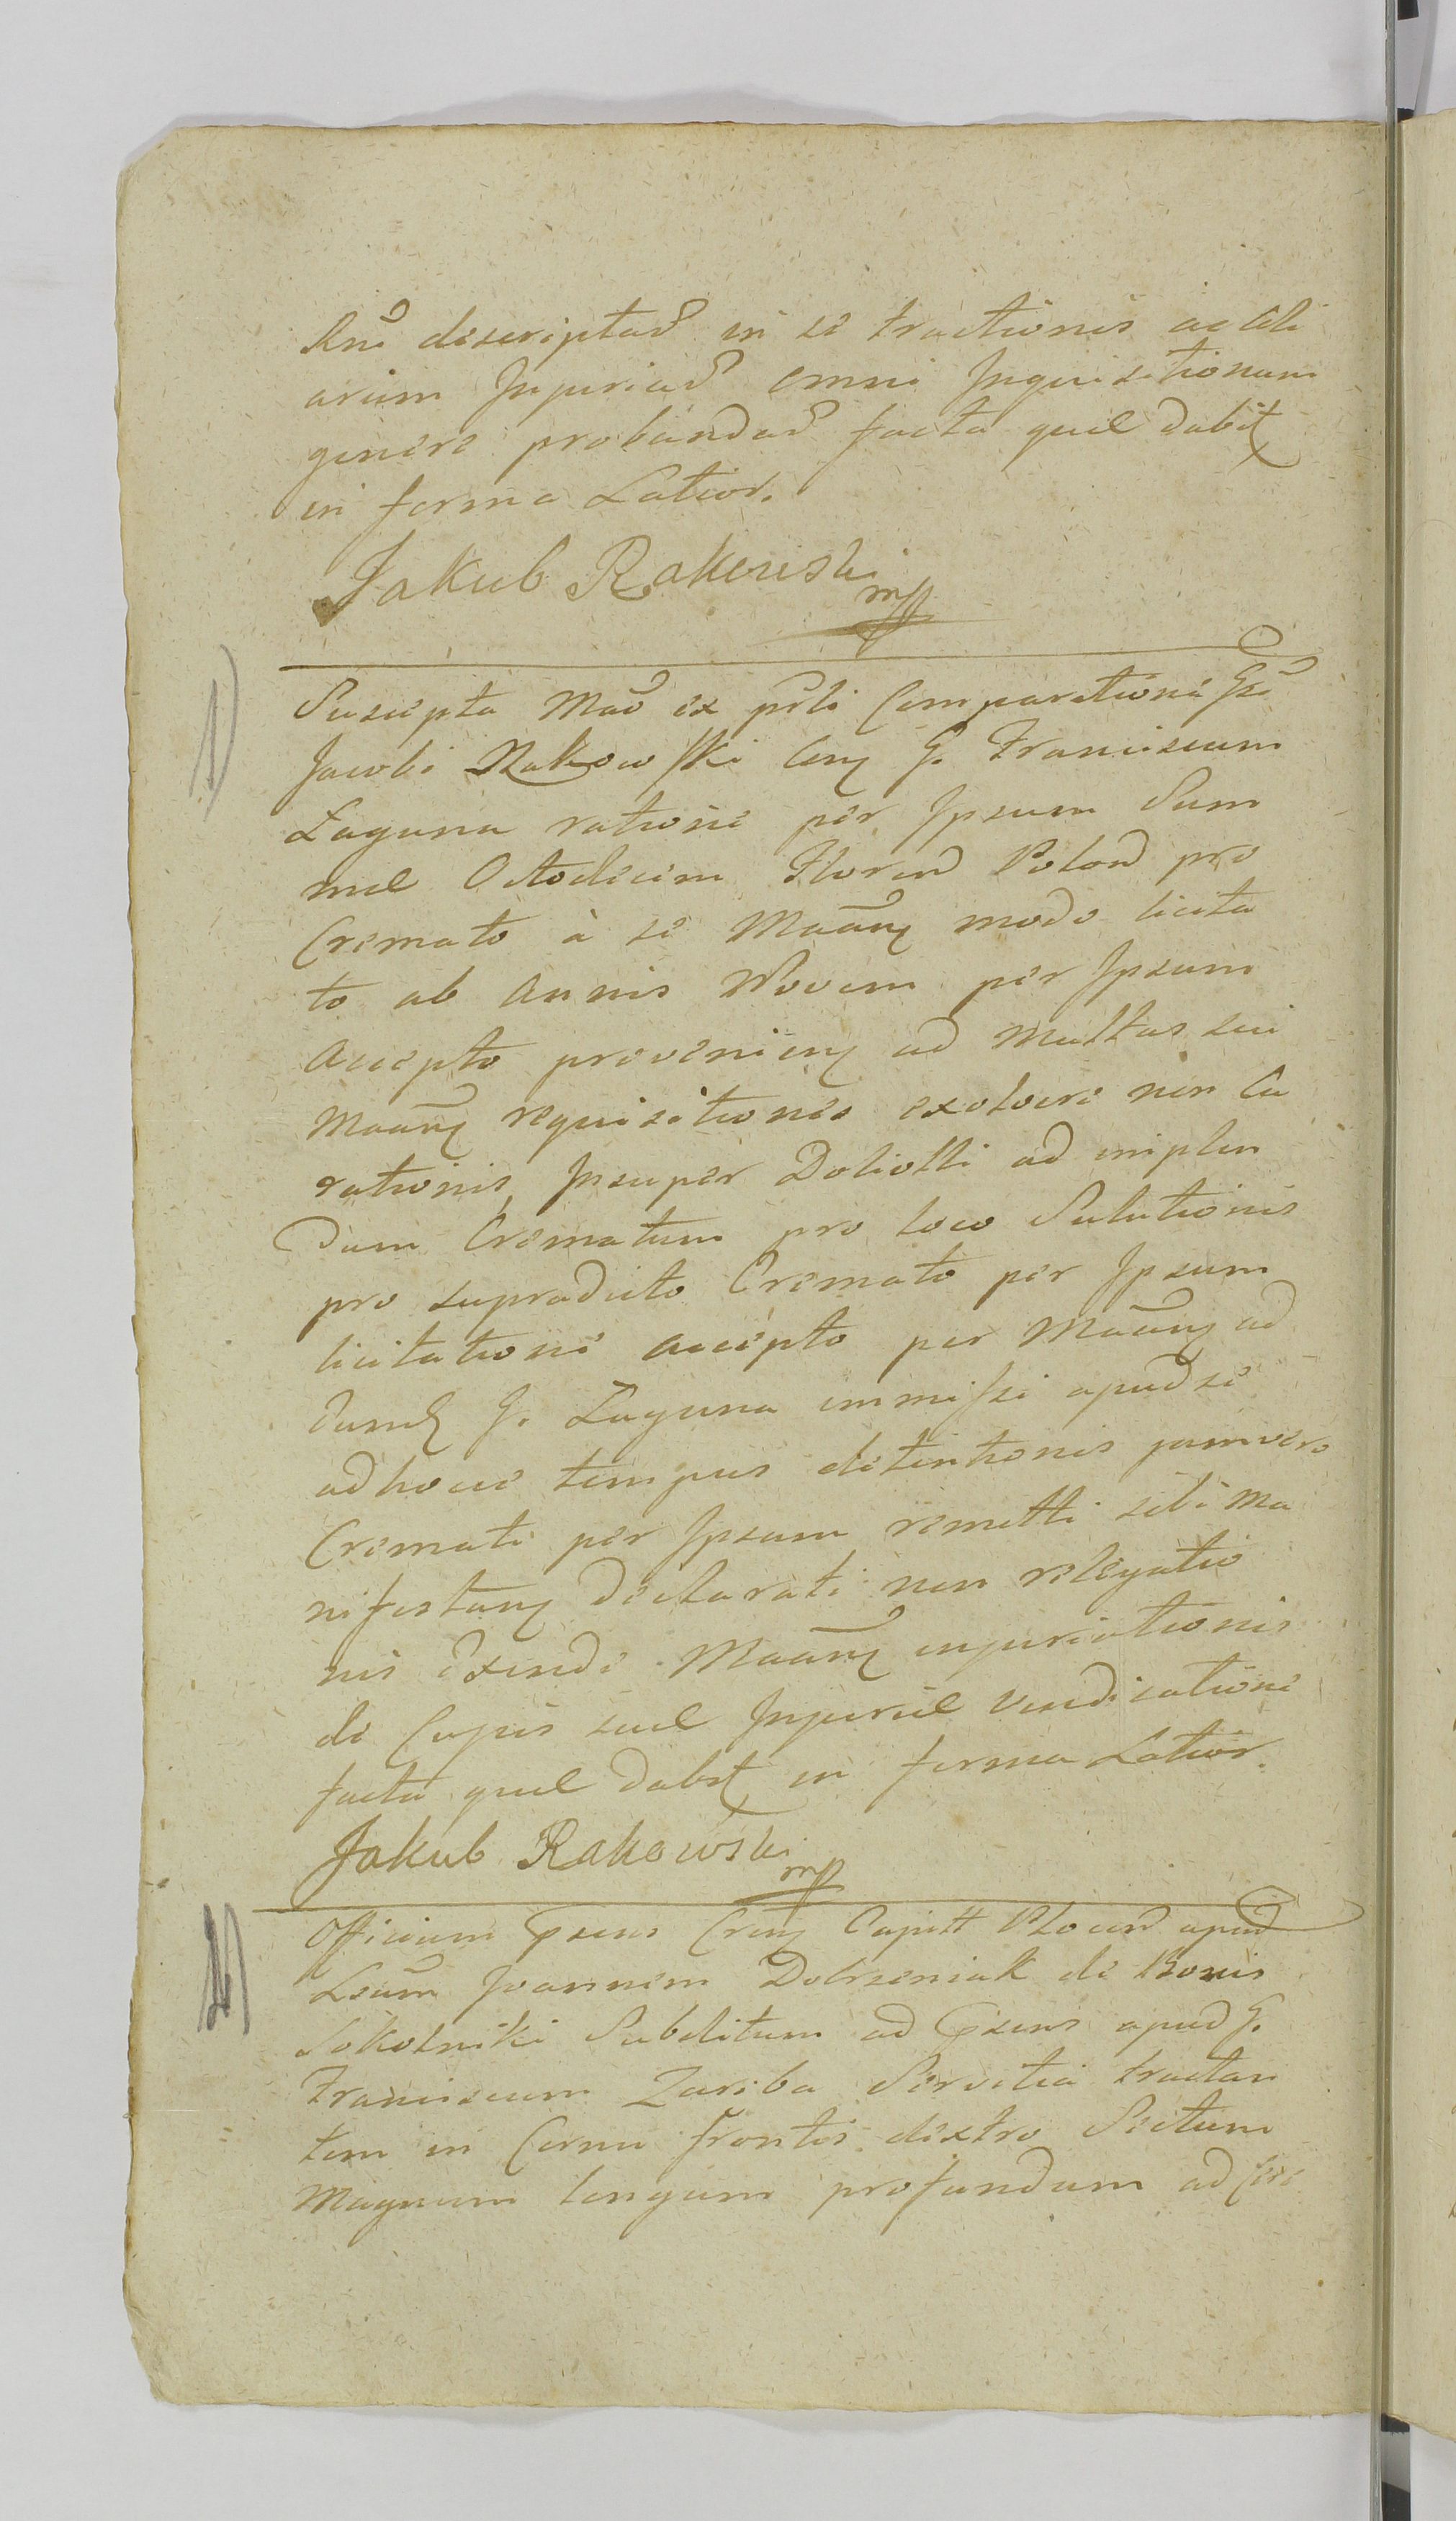 descriptar in se tractionis ac ali
arum Injuriar omni Inquisitionum
genere probandar facta quae dabit
in forma Latior.
Jakub Rakowski mpp
1)
Suscepta Mao ex prli Comparatione Gsi
Jacobi Rakowski Con G. Franciscum
Laguna ratione per Ipsum Sum
mae Octodecim Floren Polon pro
Cremato à se Maan modo licita
to ab Annis Novem per Ipsum
Accepto provenien ad Multas sui
Maan requisitiones exolvere non Cu
rationis, Insuper Doliolli ad implen
dum Crematum pro loco Solutionis
pro supradicto Cremato per Ipsum
licitatione accepto per Maan ad
eund G. Laguna immissi apud se
adhocce tempus detentionis jamvero
Cremati per Ipsum remitti sibi Ma
nifestan declarati non relegatio
nis Exinde Maan injuriationis
de Cujus suae Injuriae vendicatione
facta quae dabit in forma Latior.
Jakub Rakowski mpp
2)
Officium Psens Cren Capitt Plocen apud
Joannem Dobrzeniak de Bonis
Sokolniki Subditum ad Psens apud G.
Franciscum Zariba Servitia tractan
tem in Cornu frontis dextro Sectum
Magnum longum profundum ad